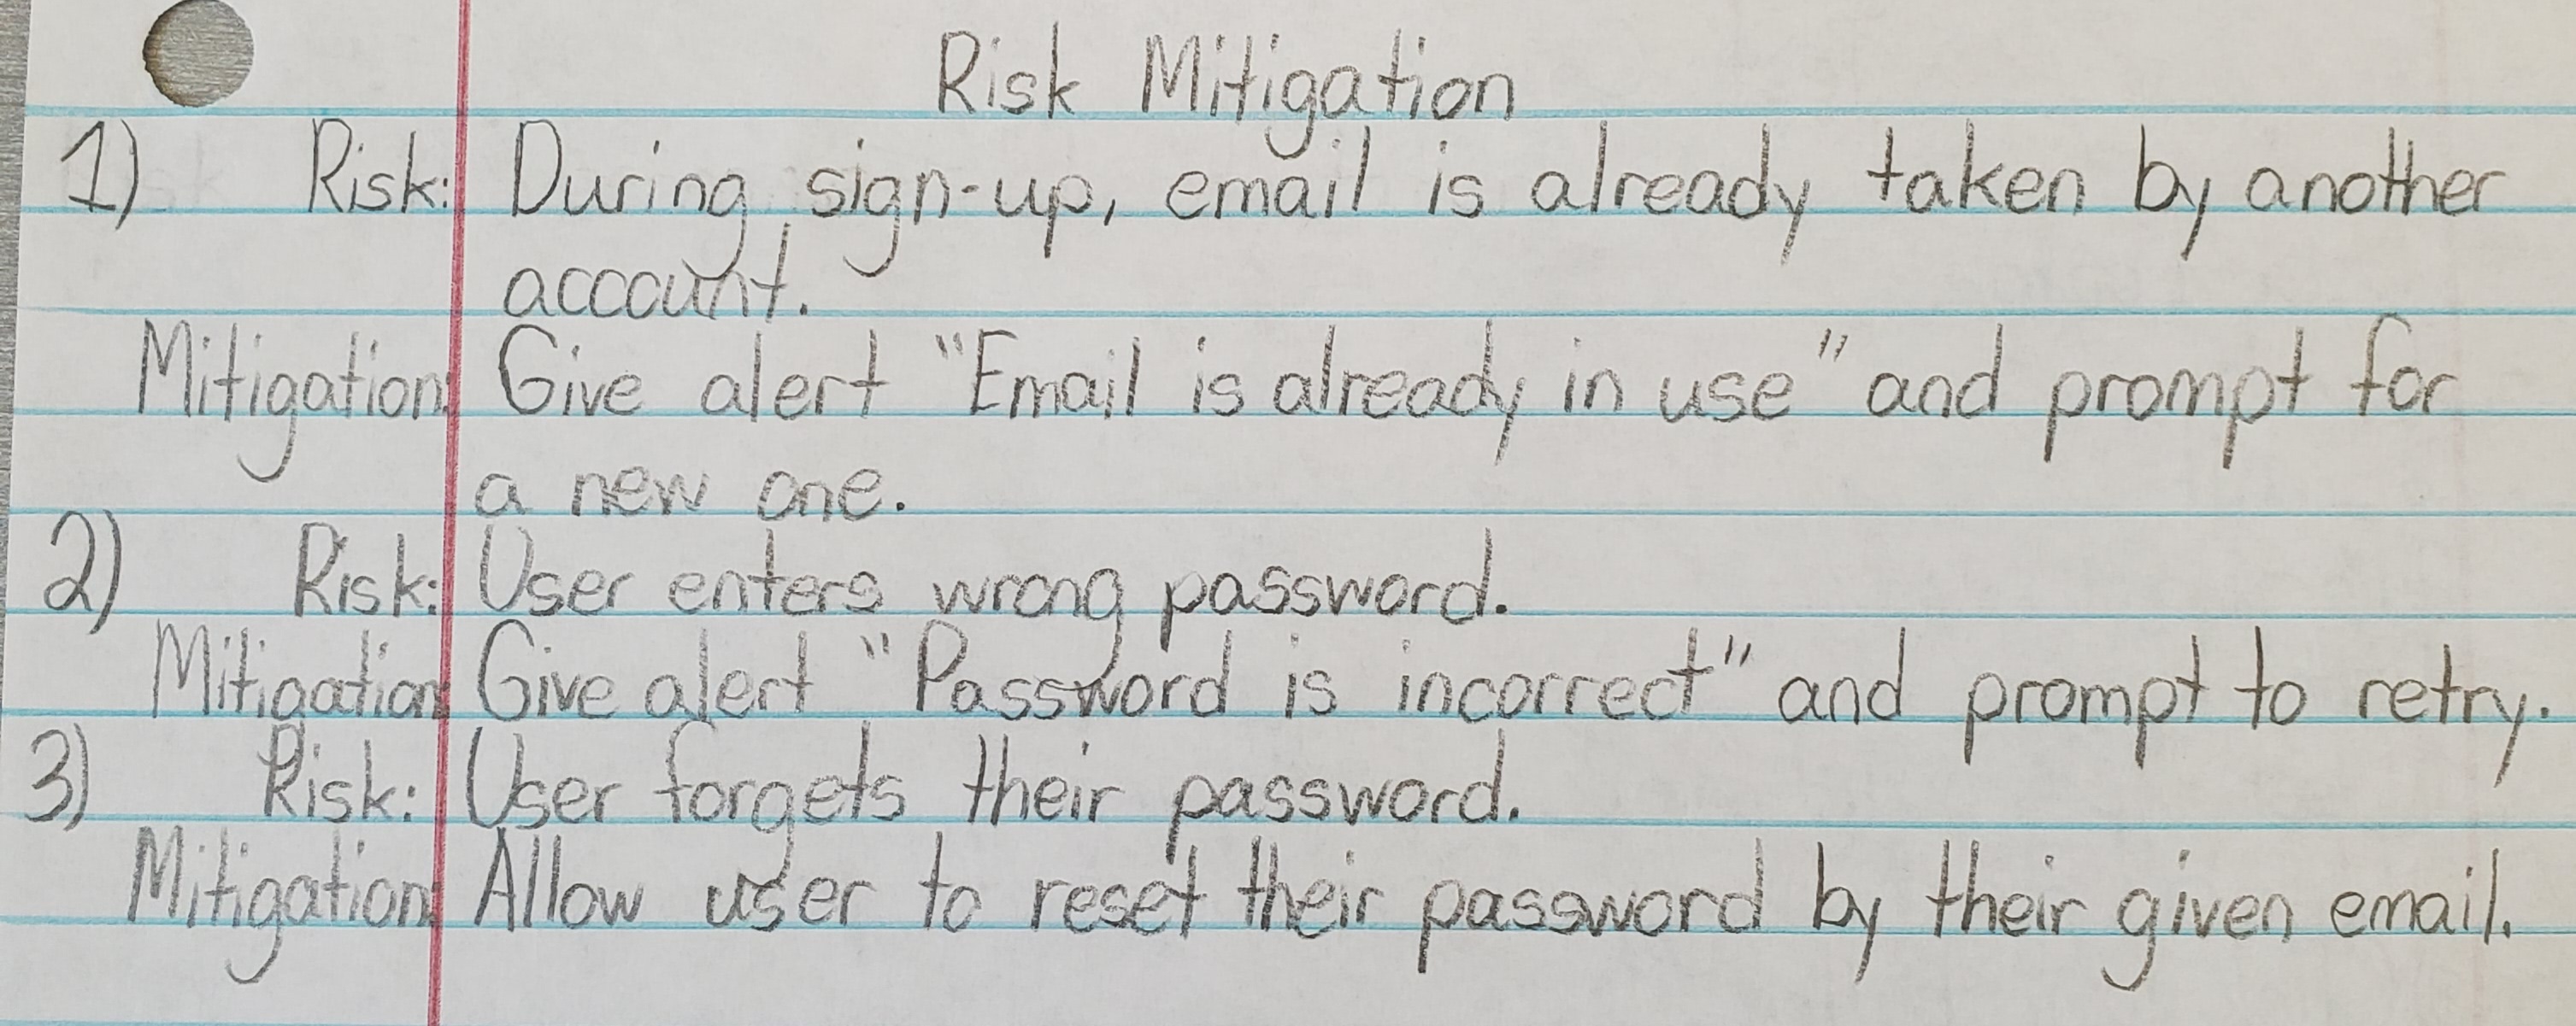 Risk Mitigation
1) Risk: During sign-up, email is already taken by another
account.
Mitigation: Give alert "Email is already in use" and prompt for
a new one.
2) Risk: User enters wrong password.
Mitigation: Give alert "Password is incorrect" and prompt to retry.
3) Risk: User forgets their password.
Mitigation: Allow user to reset their password by their given email.